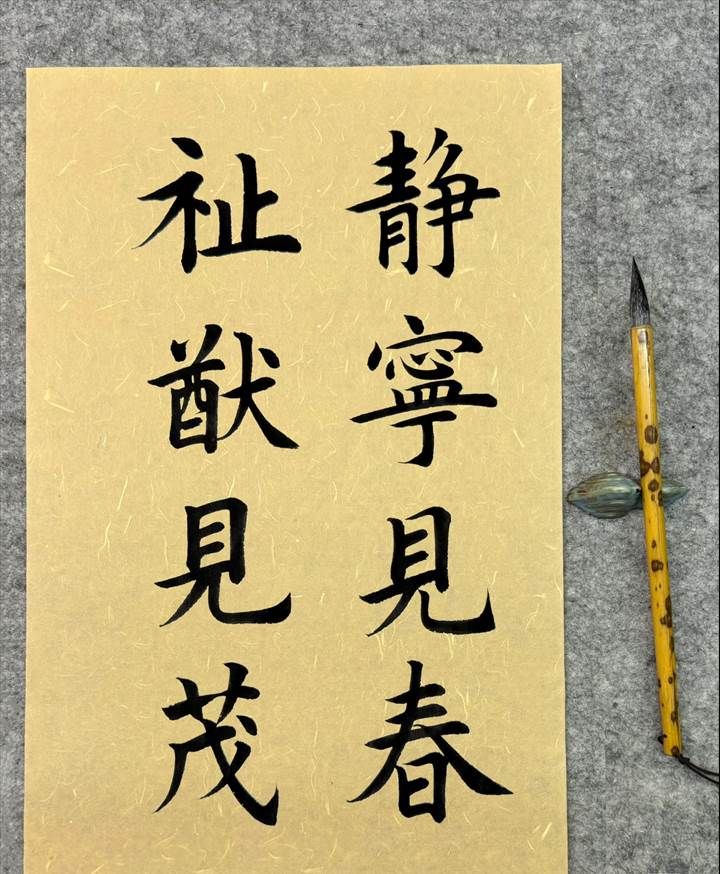 静寧見春
祉猷見茂